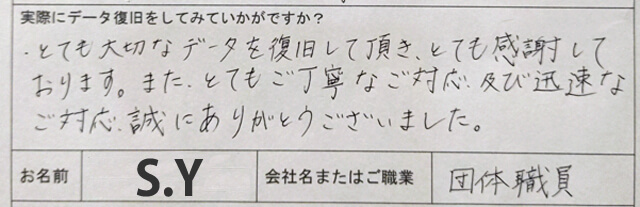 実際にデータ復旧をしてみていかがですか？
・とても大切なデータを復旧して頂き、とても感謝して
おります。また、とてもご丁寧なご対応、及び迅速な
ご対応、誠にありがとうございました。
お名前 S.Y 会社名またはご職業 団体職員